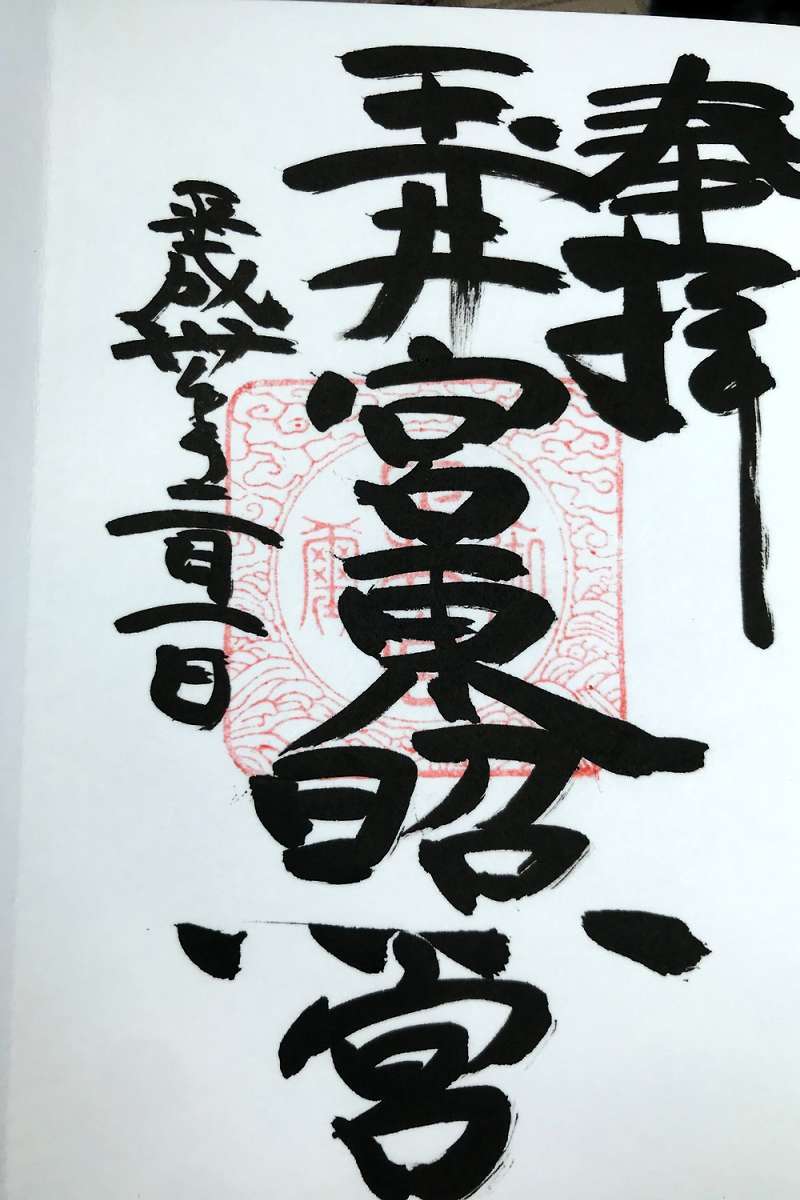 奉拝
玉井宮東照宮
平成卅年二月一日